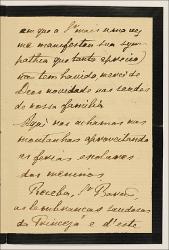 em que a Sra mais uma vez
me manifestou sua sym-
pathia que tanto aprecio,
não tem havido, mercê de
Deus novidade nas saudes
de nossa familia
Aqui nos achamos nas
montanhas aproveitando
as ferias escolares
dos meninos.
Receba, Sr Barão,
as lembranças saudosas
da Princeza e d'este